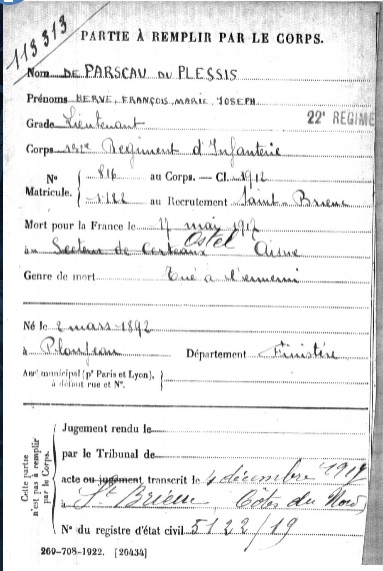 113313
PARTIE À REMPLIR PAR LE CORPS.
Nom DE PARSCAU DU PLESSIS
Prénoms HERVE, FRANÇOIS, MARIE, JOSEPH
Grade Lieutenant
22e REGIME
Corps Regiment d'Infanterie
N° Matricule.
816 au Corps. — Cl. 1912
1122 au Recrutement Saint-Brieuc
Mort pour la France le 17 mai 1917
Ostel
au Secteur de Certeaux Aisne
Genre de mort Tué a l'ennemi
Né le 2 mars 1892
à Ploujean Département Finistère
Arr' municipal (p' Paris et Lyon), à défaut rue et N°.
Cette partie n'est pas à remplir par le Corps.
Jugement rendu le
par le Tribunal de
acte ou jugement transcrit le 4 décembre 1917
à St Brieuc Côtes du Nord
N° du registre d'état civil 5122/19
269-708-1922. [26434]